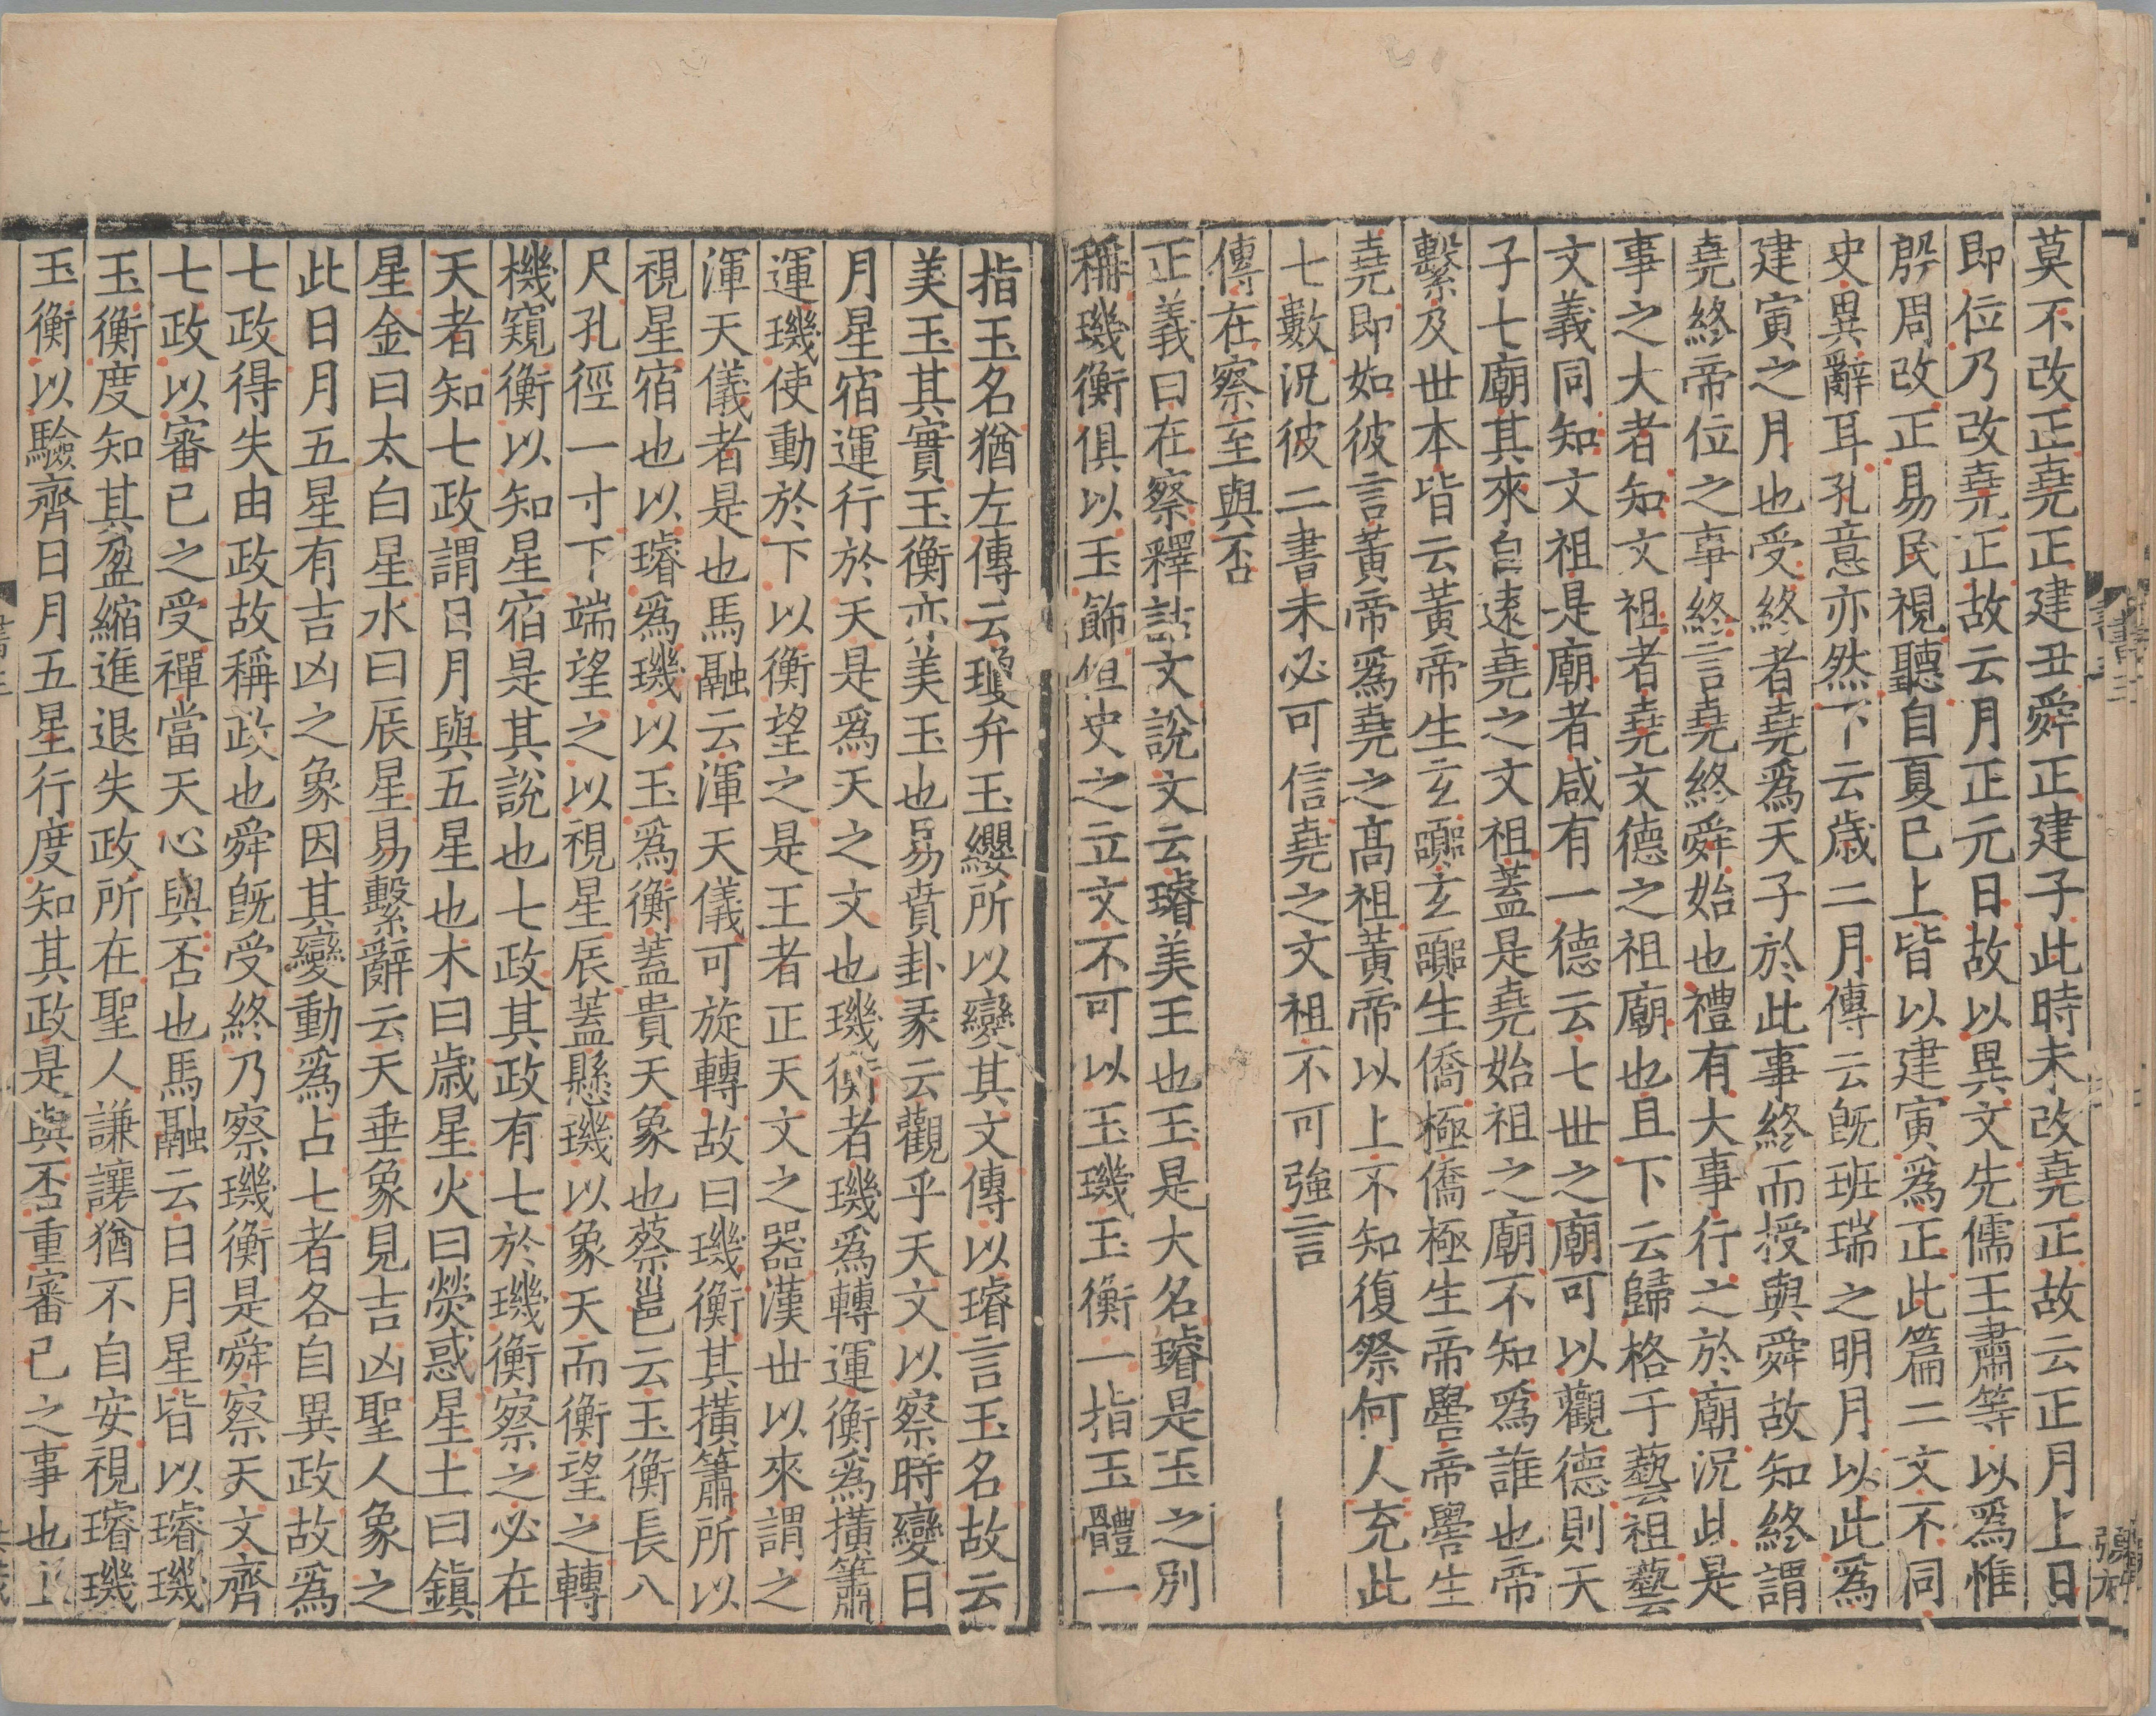 莫不改正堯正建丑舜正建子此時未改堯正故云正月上日
即位乃改堯正故云月正元日故以異文先儒王肅等以爲惟
殷周改正易民視聽自夏已上皆以建寅爲正此篇二文不同
史異辭耳孔意亦然下云歳二月傳云旣班瑞之明月以此爲
建寅之月也受終者堯爲天子於此事終而授與舜故知終謂
堯終帝位之事終言堯終舜始也禮有大事行之於廟況此是
事之大者知文祖者堯文德之祖廟也且下云歸格于藝祖藝
文義同知文祖是廟者咸有一德云七世之廟可以觀德則天
子七廟其來自遠堯之文祖蓋是堯始祖之廟不知爲誰也帝
繫及世本皆云黃帝生玄嚻玄嚻生僑極僑極生帝嚳帝嚳生
堯即如彼言黃帝爲堯之高祖黃帝以上不知復祭何人充此
七數況彼二書未必可信堯之文祖不可強言
傳在察至與否
正義曰在察釋詁文說文云璿美玉也玉是大名璿是玉之別
稱璣衡俱以玉飾但史之立文不可以玉璣玉衡一指玉體一
指玉名猶左傳云瓊弁玉纓所以變其文傳以璿言玉名故云
美玉其實玉衡亦美玉也易賁卦彖云觀乎天文以察時變日
月星宿運行於天是爲天之文也璣衡者璣爲轉運衡爲橫簫
運璣使動於下以衡望之是王者正天文之器漢世以來謂之
渾天儀者是也馬融云渾天儀可旋轉故曰璣衡其橫簫所以
視星宿也以璿爲璣以玉爲衡蓋貴天象也蔡邕云玉衡長八
尺孔徑一寸下端望之以視星辰蓋懸璣以象天而衡望之轉
機窺衡以知星宿是其說也七政其政有七於璣衡察之必在
天者知七政謂日月與五星也木曰歳星火曰熒惑星土曰鎮
星金曰太白星水曰辰星易繫辭云天垂象見吉凶聖人象之
此日月五星有吉凶之象因其變動爲占七者各自異政故爲
七政得失由政故稱政也舜旣受終乃察璣衡是舜察天文齊
七政以審己之受禪當天心與否也馬融云日月星皆以璿璣
玉衡度知其盈縮進退失政所在聖人謙讓猶不自安視璿璣
玉衡以驗齊日月五星行度知其政是與否重審己之事也上